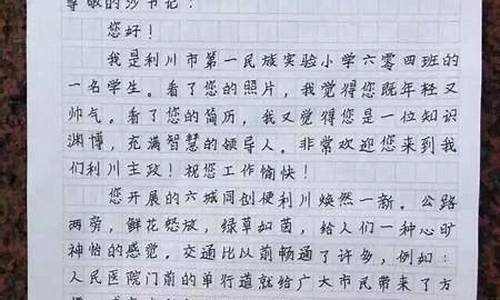 尊敬的沙书记：
您好！
我是利川市第一民族实验小学六零四班的
一名学生。看了您的照片，我觉得您既年轻又
帅气。看了您的简历，我又觉得您是一位知识
渊博，充满智慧的领导人。非常欢迎您来到我
们利川主政！祝您工作愉快！
您开展的六城同创使利川焕然一新。公路
两旁，鲜花怒放，绿草如茵，给人们一种心旷
神怡的感觉。交通比以前畅通了许多，例如：
人民医院门前的单行道就给广大市民带来了方